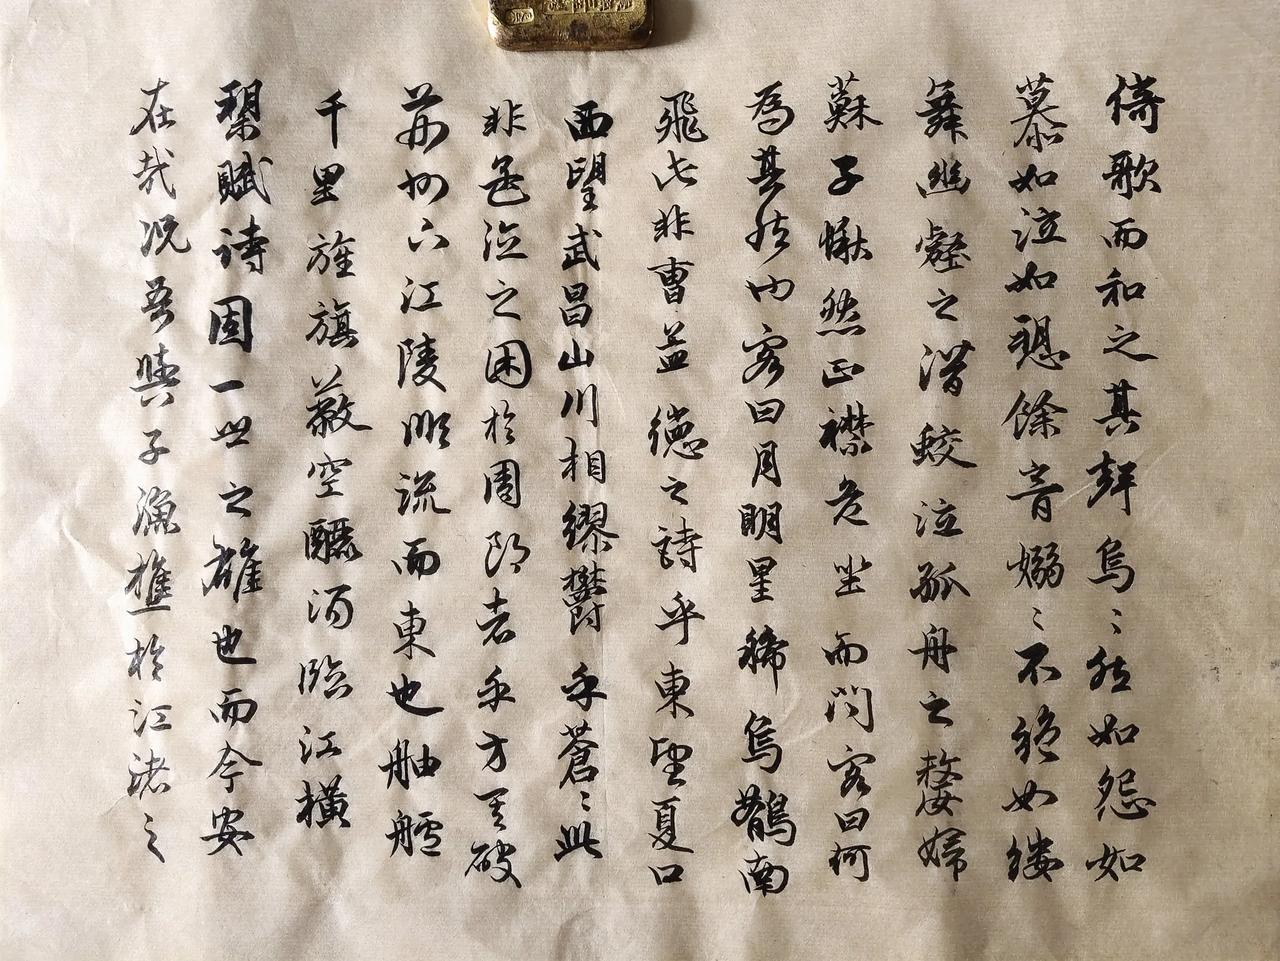 倚歌而和之其聲烏〻然如怨如
慕如泣如愬餘音嫋〻不絕如縷
舞幽壑之潛蛟泣孤舟之嫠婦
蘇子愀然正襟危坐而問客曰何
為其然也客曰月明星稀烏鵲南
飛此非曹孟德之詩乎東望夏口
西望武昌山川相繆鬱乎蒼〻此
非孟德之困於周郎者乎方其破
荊州下江陵順流而東也舳艫
千里旌旗蔽空釃酒臨江橫
槊賦詩固一世之雄也而今安
在哉況吾與子漁樵於江渚之